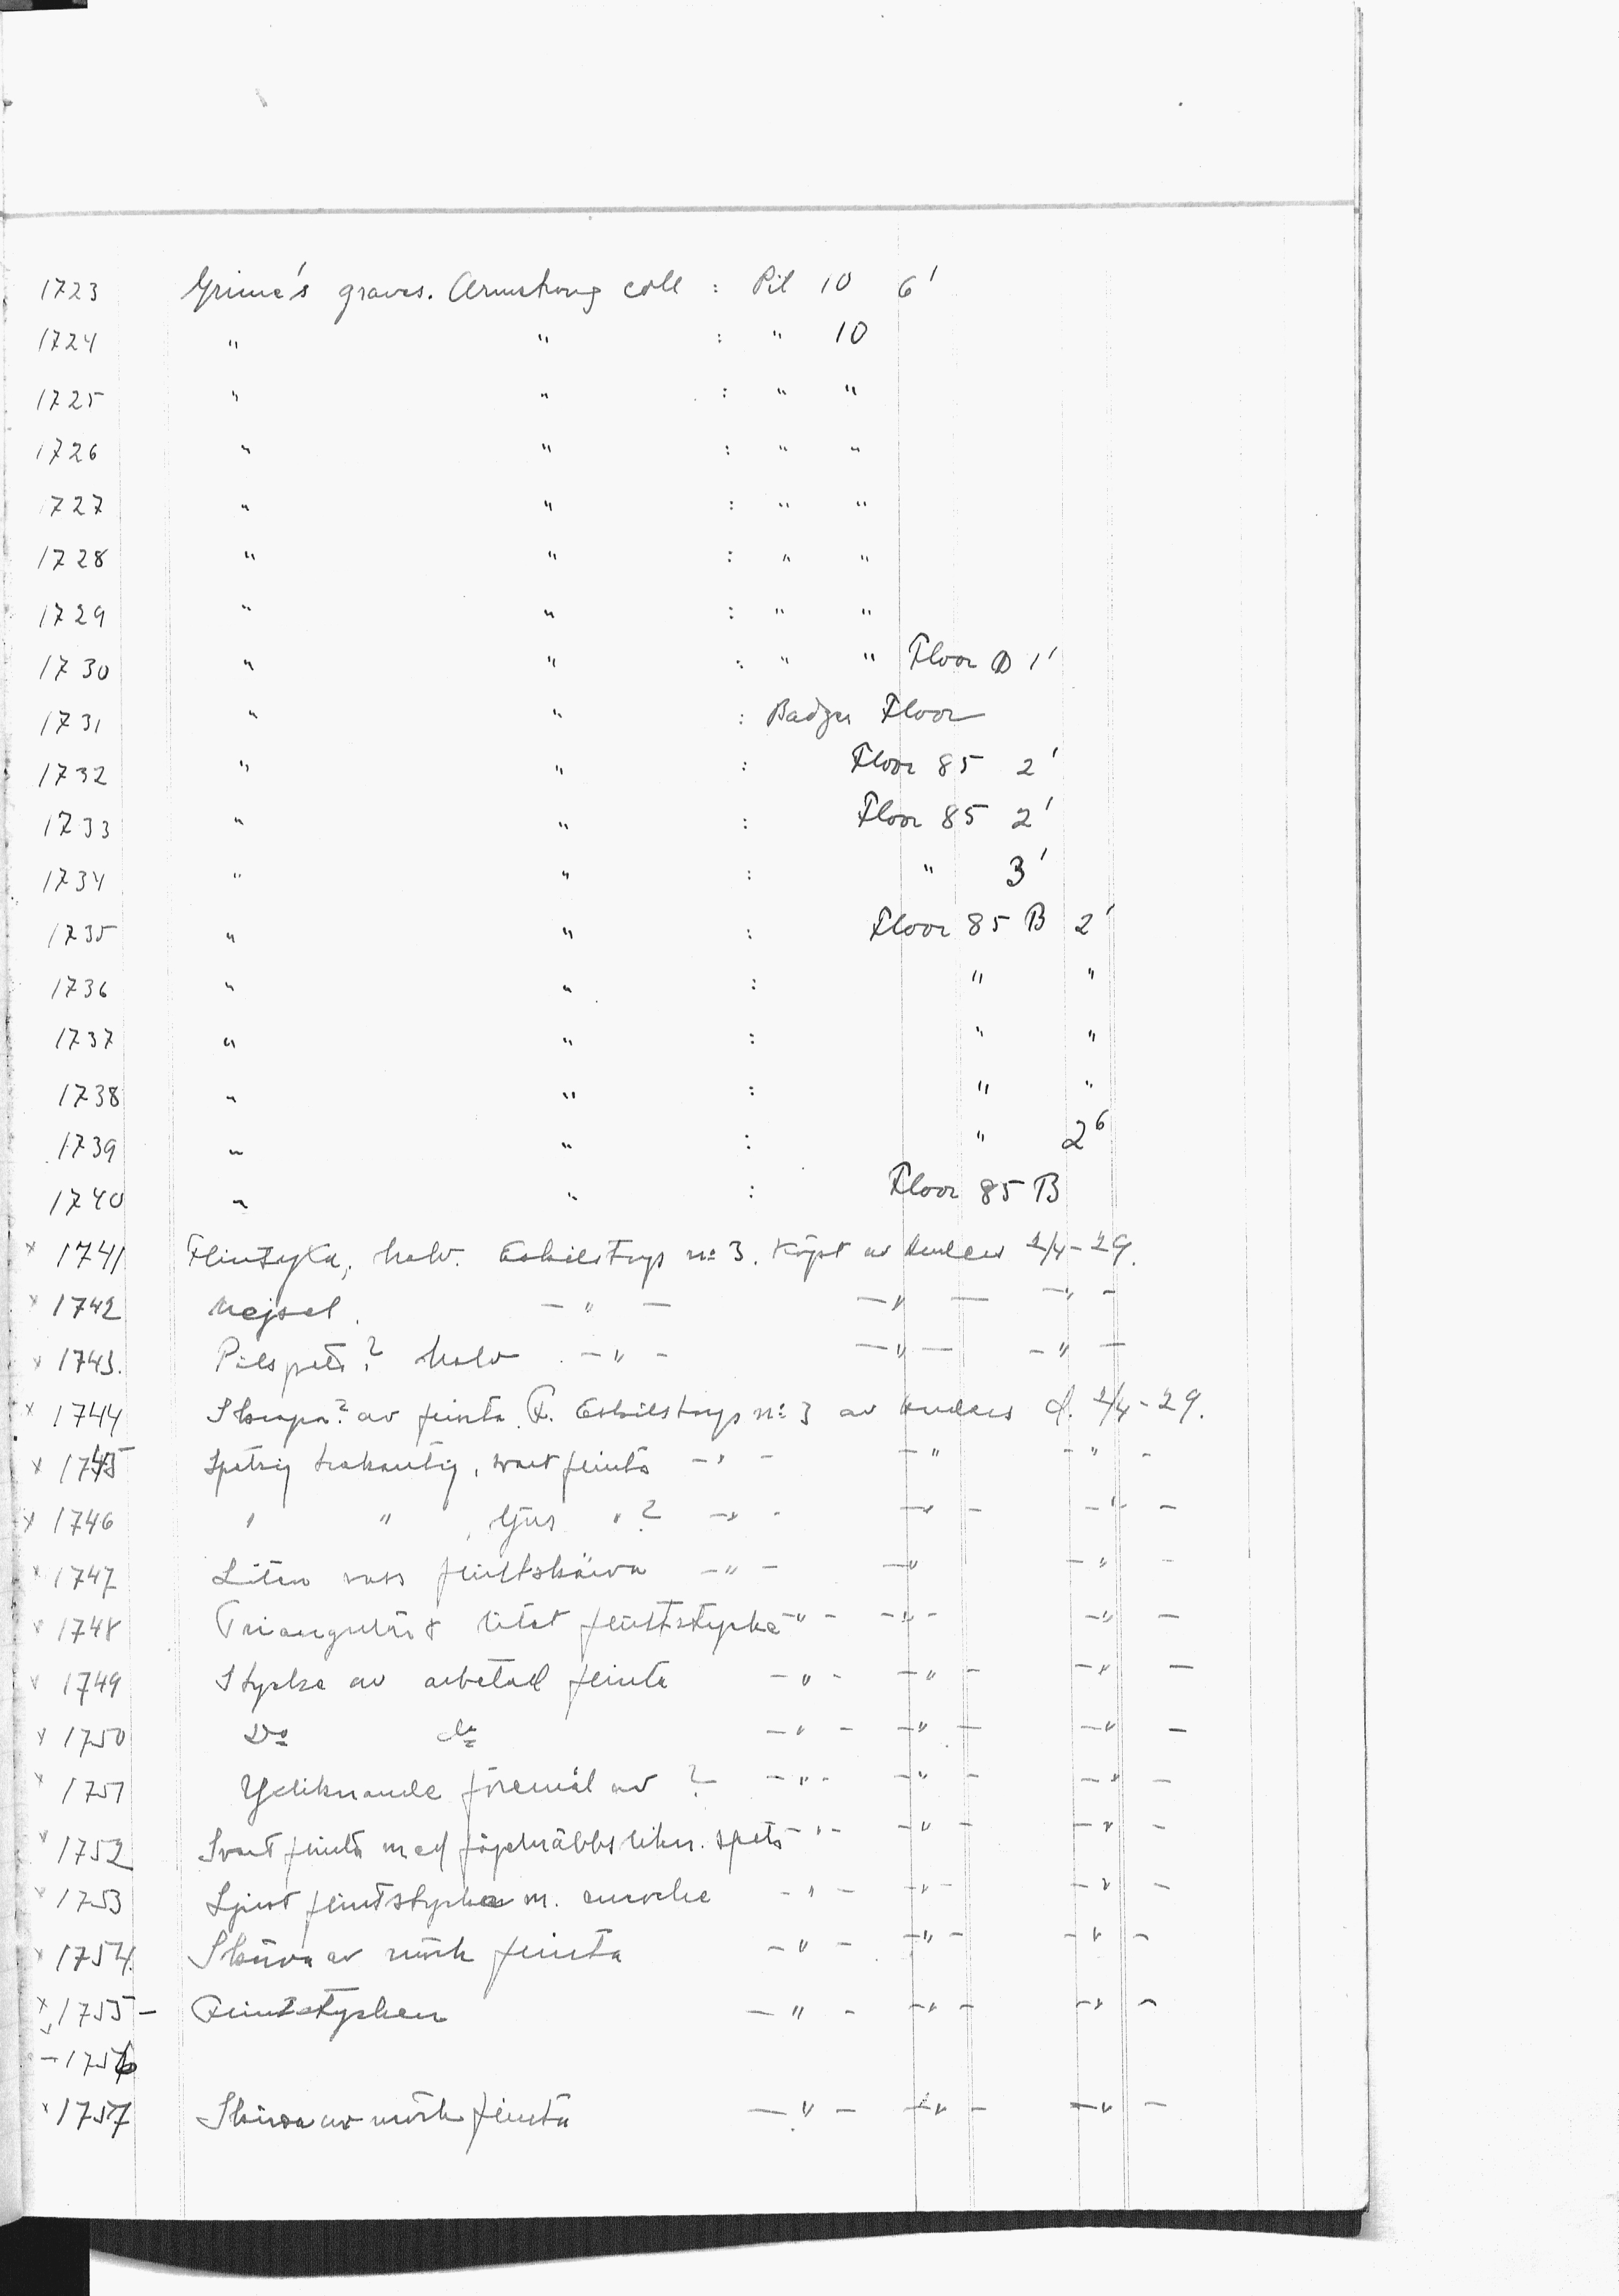 1723 Grime's graves. Armstrong coll : Pit 10 6'
1724 " " : " 10
1725 " " : " "
1726 " " : " "
1727 " " : " "
1728 " " : " "
1729 " " : " "
1730 " " : " " Floor D 1'
1731 " " : Badger Floor
1732 " " : Floor 85 2'
1733 " " : Floor 85 2'
1734 " " : " 3'
1735 " " : Floor 85 B 2'
1736 " " : " "
1737 " " : " "
1738 " " : " "
1739 " " : " 2 6
1740 " " : Floor 85 B
x 1741 Flintyxa, halv. Eskilstorp nº 3. Köpt av 2/4-29.
x 1742 Mejsel. -"- -"- -"-
x 1743. Pilspets? halv -"- -"- -"-
x 1744 Skrapa? av flinta. F. Eskilstorp nº 3 av d. 2/4-29.
x 1745 Spetsig trekantig, svart flinta -"- -" -"-
x 1746 " " , ljus "? -"- -"- -"-
x 1747 Liten vass flintskärva -"- -" -"-
x 1748 Triangulärt litet flintstycke -"- -"- -"-
x 1749 Stycke av arbetad flinta -"- -"- -"-
x 1750 Dº dº -"- -"- -"-
x 1751 Yxliknande föremål av ? -"- -"- -"-
x 1752 Svart flinta med näbbslikn. spets -"- -"- -"-
x 1753 Ljust flintstycke m. -"- -"- -"-
x 1754. Skärva av mörk flinta -"- -"- -"-
x 1755- Flintstycken -"- -"- -"-
-1756
x 1757 Skärva av mörk flinta -"- -"- -"-